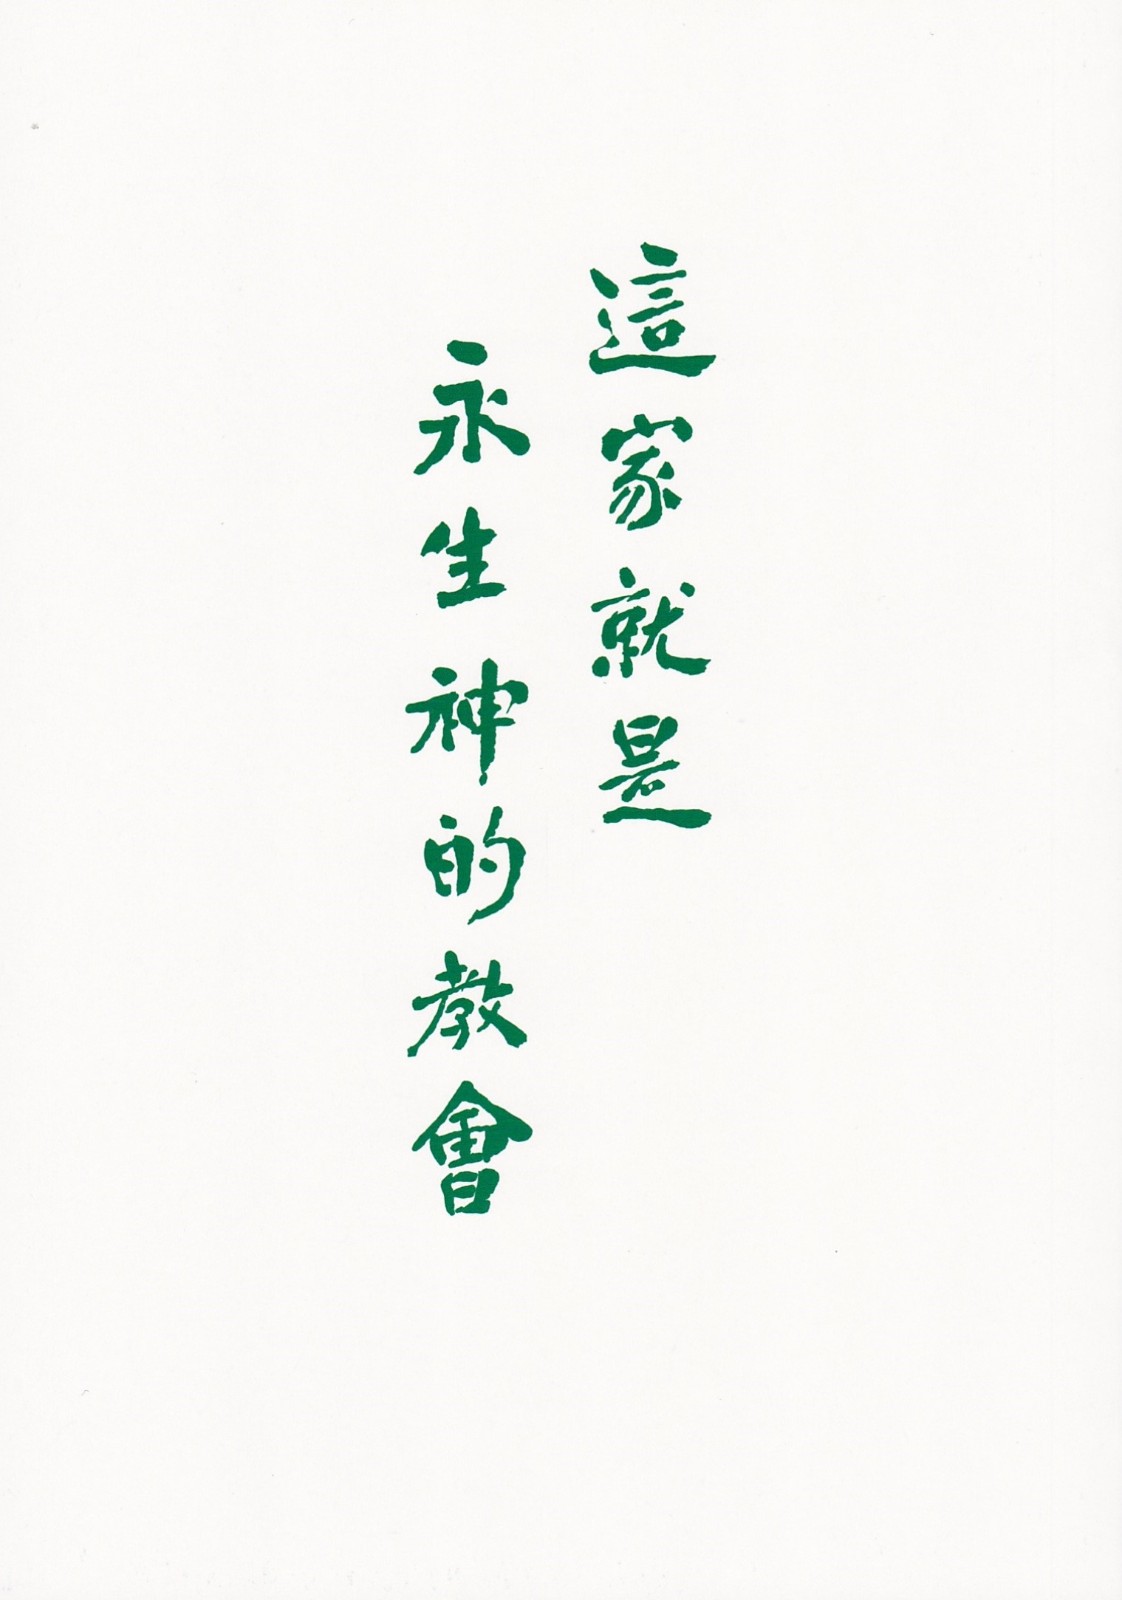 這家就是
永生神的教會